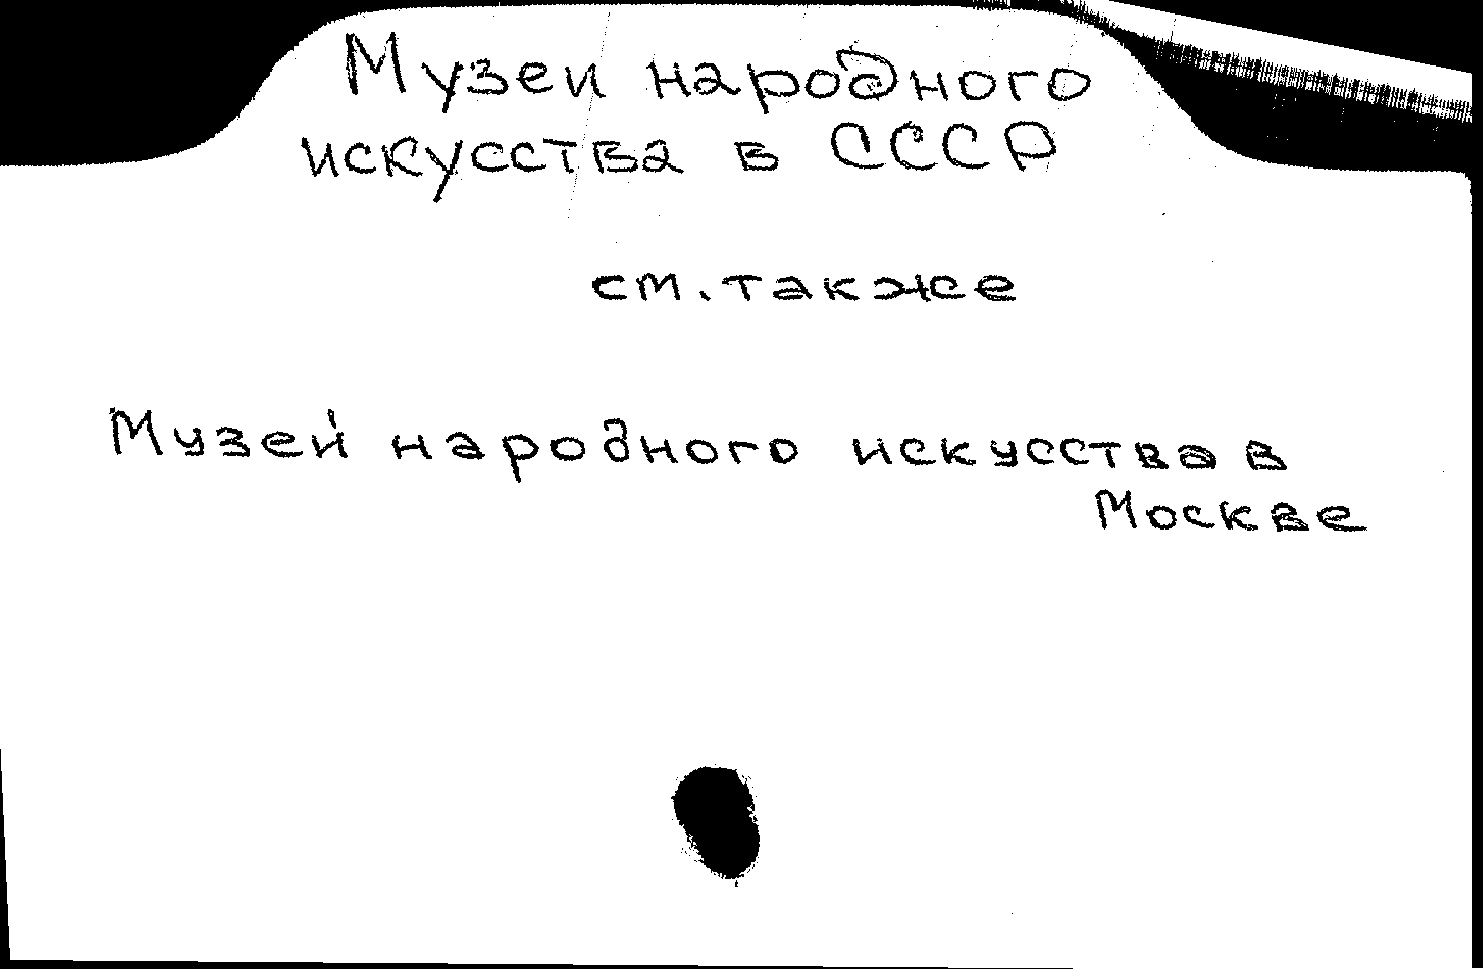 Музеи народного
искусства в СССР
см. также
Музей народного искусства в
Москве